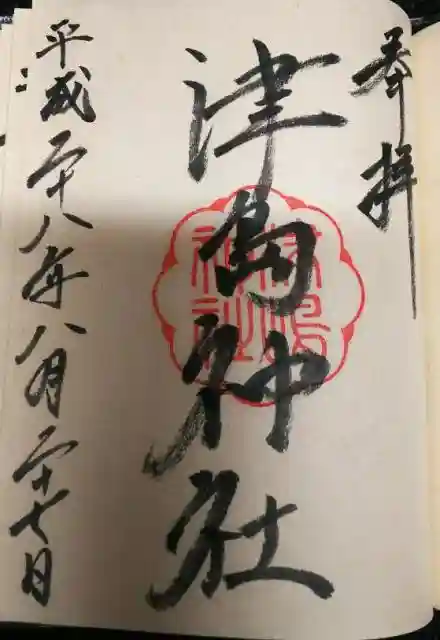 奉拝
津島神社
平成二十八年八月二十七日